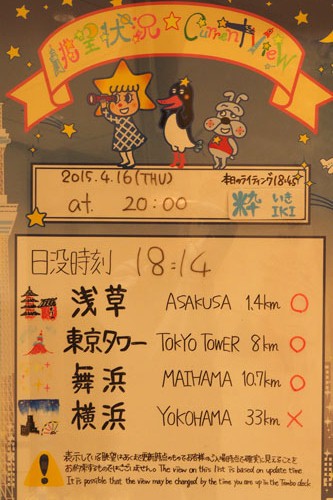 眺望状況☆Current View
2015.4.16(THU) 本日のライティング18:45~
at. 20:00 粋 いき IKI
日没時刻 18:14
浅草 ASAKUSA 1.4km ○
東京タワー TOKYO TOWER 8km ○
舞浜 MAIHAMA 10.7km ○
横浜 YOKOHAMA 33km ×
表示している眺望はあくまで更新時点のものであり
お約束するものではございません。The view on this list is based on update time
It is possible that the view may be changed by the time you are up in the Tembo deck